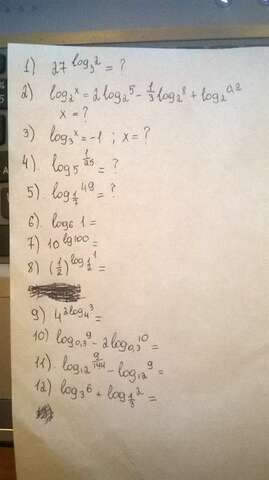 1) 27^{log_3 2} = ?
2) log_2 x = 2 log_2 5 - \frac{1}{3} log_2 8 + log_2 0,2
x = ?
3) log_3 x = -1 ; x = ?
4) log_5 \frac{1}{25} = ?
5) log_{\frac{1}{7}} 49 = ?
6) log_6 1 =
7) 10^{lg 100} =
8) (\frac{1}{2})^{log_{\frac{1}{2}} 1} =
9) 4^{2 log_4 3} =
10) log_{0,3} 9 - 2 log_{0,3} 10 =
11) log_{12} \frac{9}{144} - log_{12} 9 =
12) log_3 6 + log_{\frac{1}{3}} 2 =